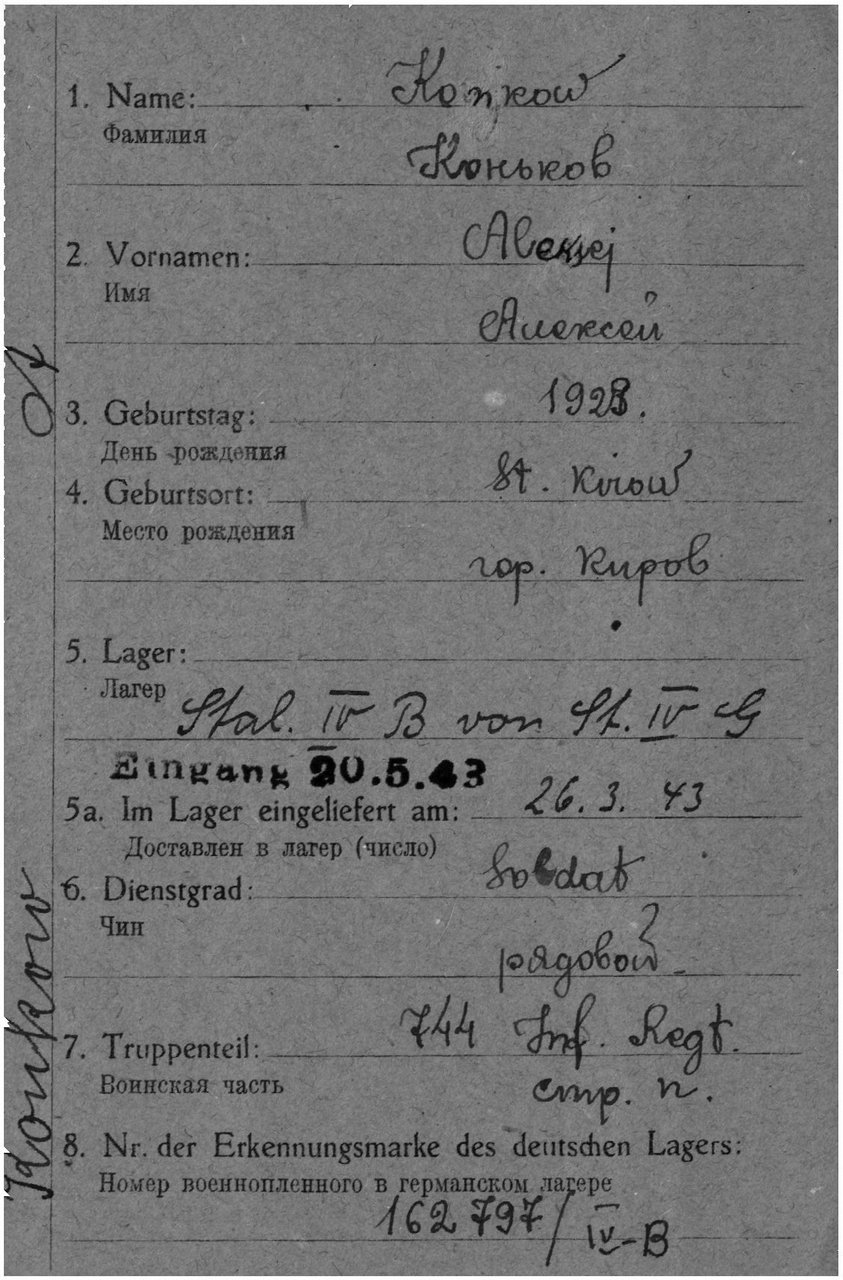 1. Name: Konkow
Фамилия
Коньков
2. Vornamen: Alexej
Имя
Алексей
3. Geburtstag: 1923.
День рождения
4. Geburtsort: St. Kirow
Место рождения
гор. Киров
5. Lager:
Лагер
Stal. IV B von St. IV G
Eingang 20.5.43
5a. Im Lager eingeliefert am: 26.3.43
Доставлен в лагер (число)
6. Dienstgrad: Soldat
Чин
рядовой
7. Truppenteil: 744 Inf. Regt.
Воинская часть стр. п.
8. Nr. der Erkennungsmarke des deutschen Lagers:
Номер военнопленного в германском лагере
162797/IV-B
Konkow